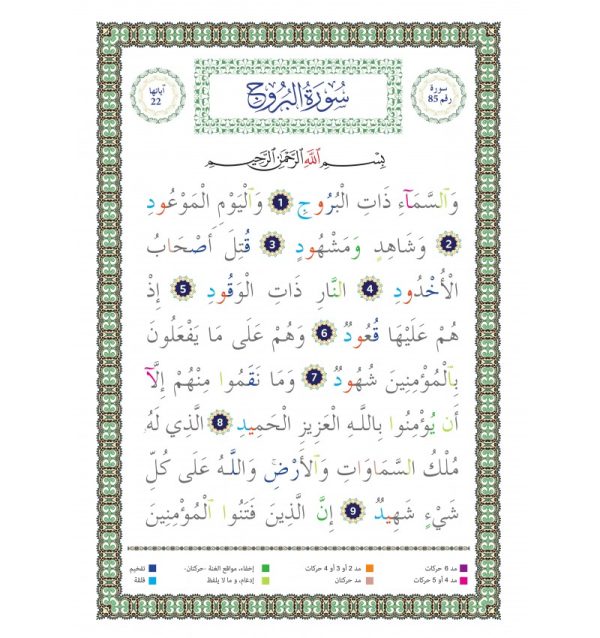 سورة
رقم 85
سُورَةُ البُرُوجِ
آياتها
22
بِسْمِ ٱللَّهِ ٱلرَّحْمَٰنِ ٱلرَّحِيمِ
وَٱلسَّمَآءِ ذَاتِ الْبُرُوجِ 1 وَٱلْيَوْمِ الْمَوْعُودِ
2 وَشَاهِدٍ وَمَشْهُودٍ 3 قُتِلَ أَصْحَابُ
الْأُخْدُودِ 4 النَّارِ ذَاتِ الْوَقُودِ 5 إِذْ
هُمْ عَلَيْهَا قُعُودٌ 6 وَهُمْ عَلَى مَا يَفْعَلُونَ
بِٱلْمُؤْمِنِينَ شُهُودٌ 7 وَمَا نَقَمُوا مِنْهُمْ إِلَّآ
أَن يُؤْمِنُوا بِاللَّهِ الْعَزِيزِ الْحَمِيدِ 8 الَّذِي لَهُ
مُلْكُ السَّمَاوَاتِ وَٱلْأَرْضِ وَاللَّهُ عَلَى كُلِّ
شَيْءٍ شَهِيدٌ 9 إِنَّ الَّذِينَ فَتَنُوا ٱلْمُؤْمِنِينَ
مد 6 حركات مد 2 أو 3 أو 4 حركات إخفاء، مواقع الغنة -حركتان- تفخيم
مد 4 أو 5 حركات مد حركتان إدغام، و ما لا يلفظ قلقة